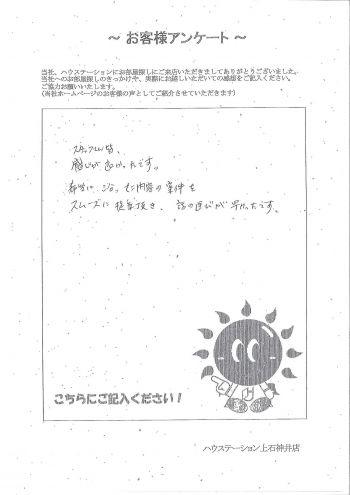 ～ お客様アンケート ～
当社、ハウステーションにお部屋探しにご来店いただきましてありがとうございました。
当社へのお部屋探しのきっかけや、実際にお越しいただいての感想をご記入ください。
ご協力お願いいたします。
(当社ホームページのお客様の声としてご紹介させていただきます)
スタッフの皆、
感じが良かったです。
希望に沿った内容の案件を
スムーズに提案頂き、話の運びが早かったです。
こちらにご記入ください！
ハウステーション上石神井店